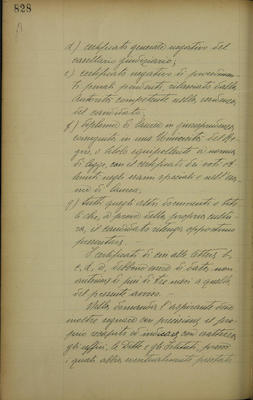 828
d) certificato generale negativo del
casellario giudiziario;
e) certificato negativo di procedimen-
ti penali pendenti, rilasciato dalla
autorità competente nella residenza
del candidato;
f) diploma di laurea in giurisprudenza,
conseguita in una Università del Re-
gno, o titolo equipollente a norma
di legge, con il certificato dei voti ot-
tenuti negli esami speciali e nell'esa-
me di laurea;
g) tutti quegli altri documenti e tito-
li che, a prova della propria cultu-
ra, il candidato ritenga opportuno
presentare.
I certificati di cui alle lettere b,
c, d, e, debbono essere di data non
anteriore di più di tre mesi a quella
del presente avviso.
Nella domanda l'aspirante deve
inoltre segnare con precisione il pro-
prio recapito ed indicare con esattezza
gli uffici, le Ditte e gli Istituti, presso
i quali abbia eventualmente prestato